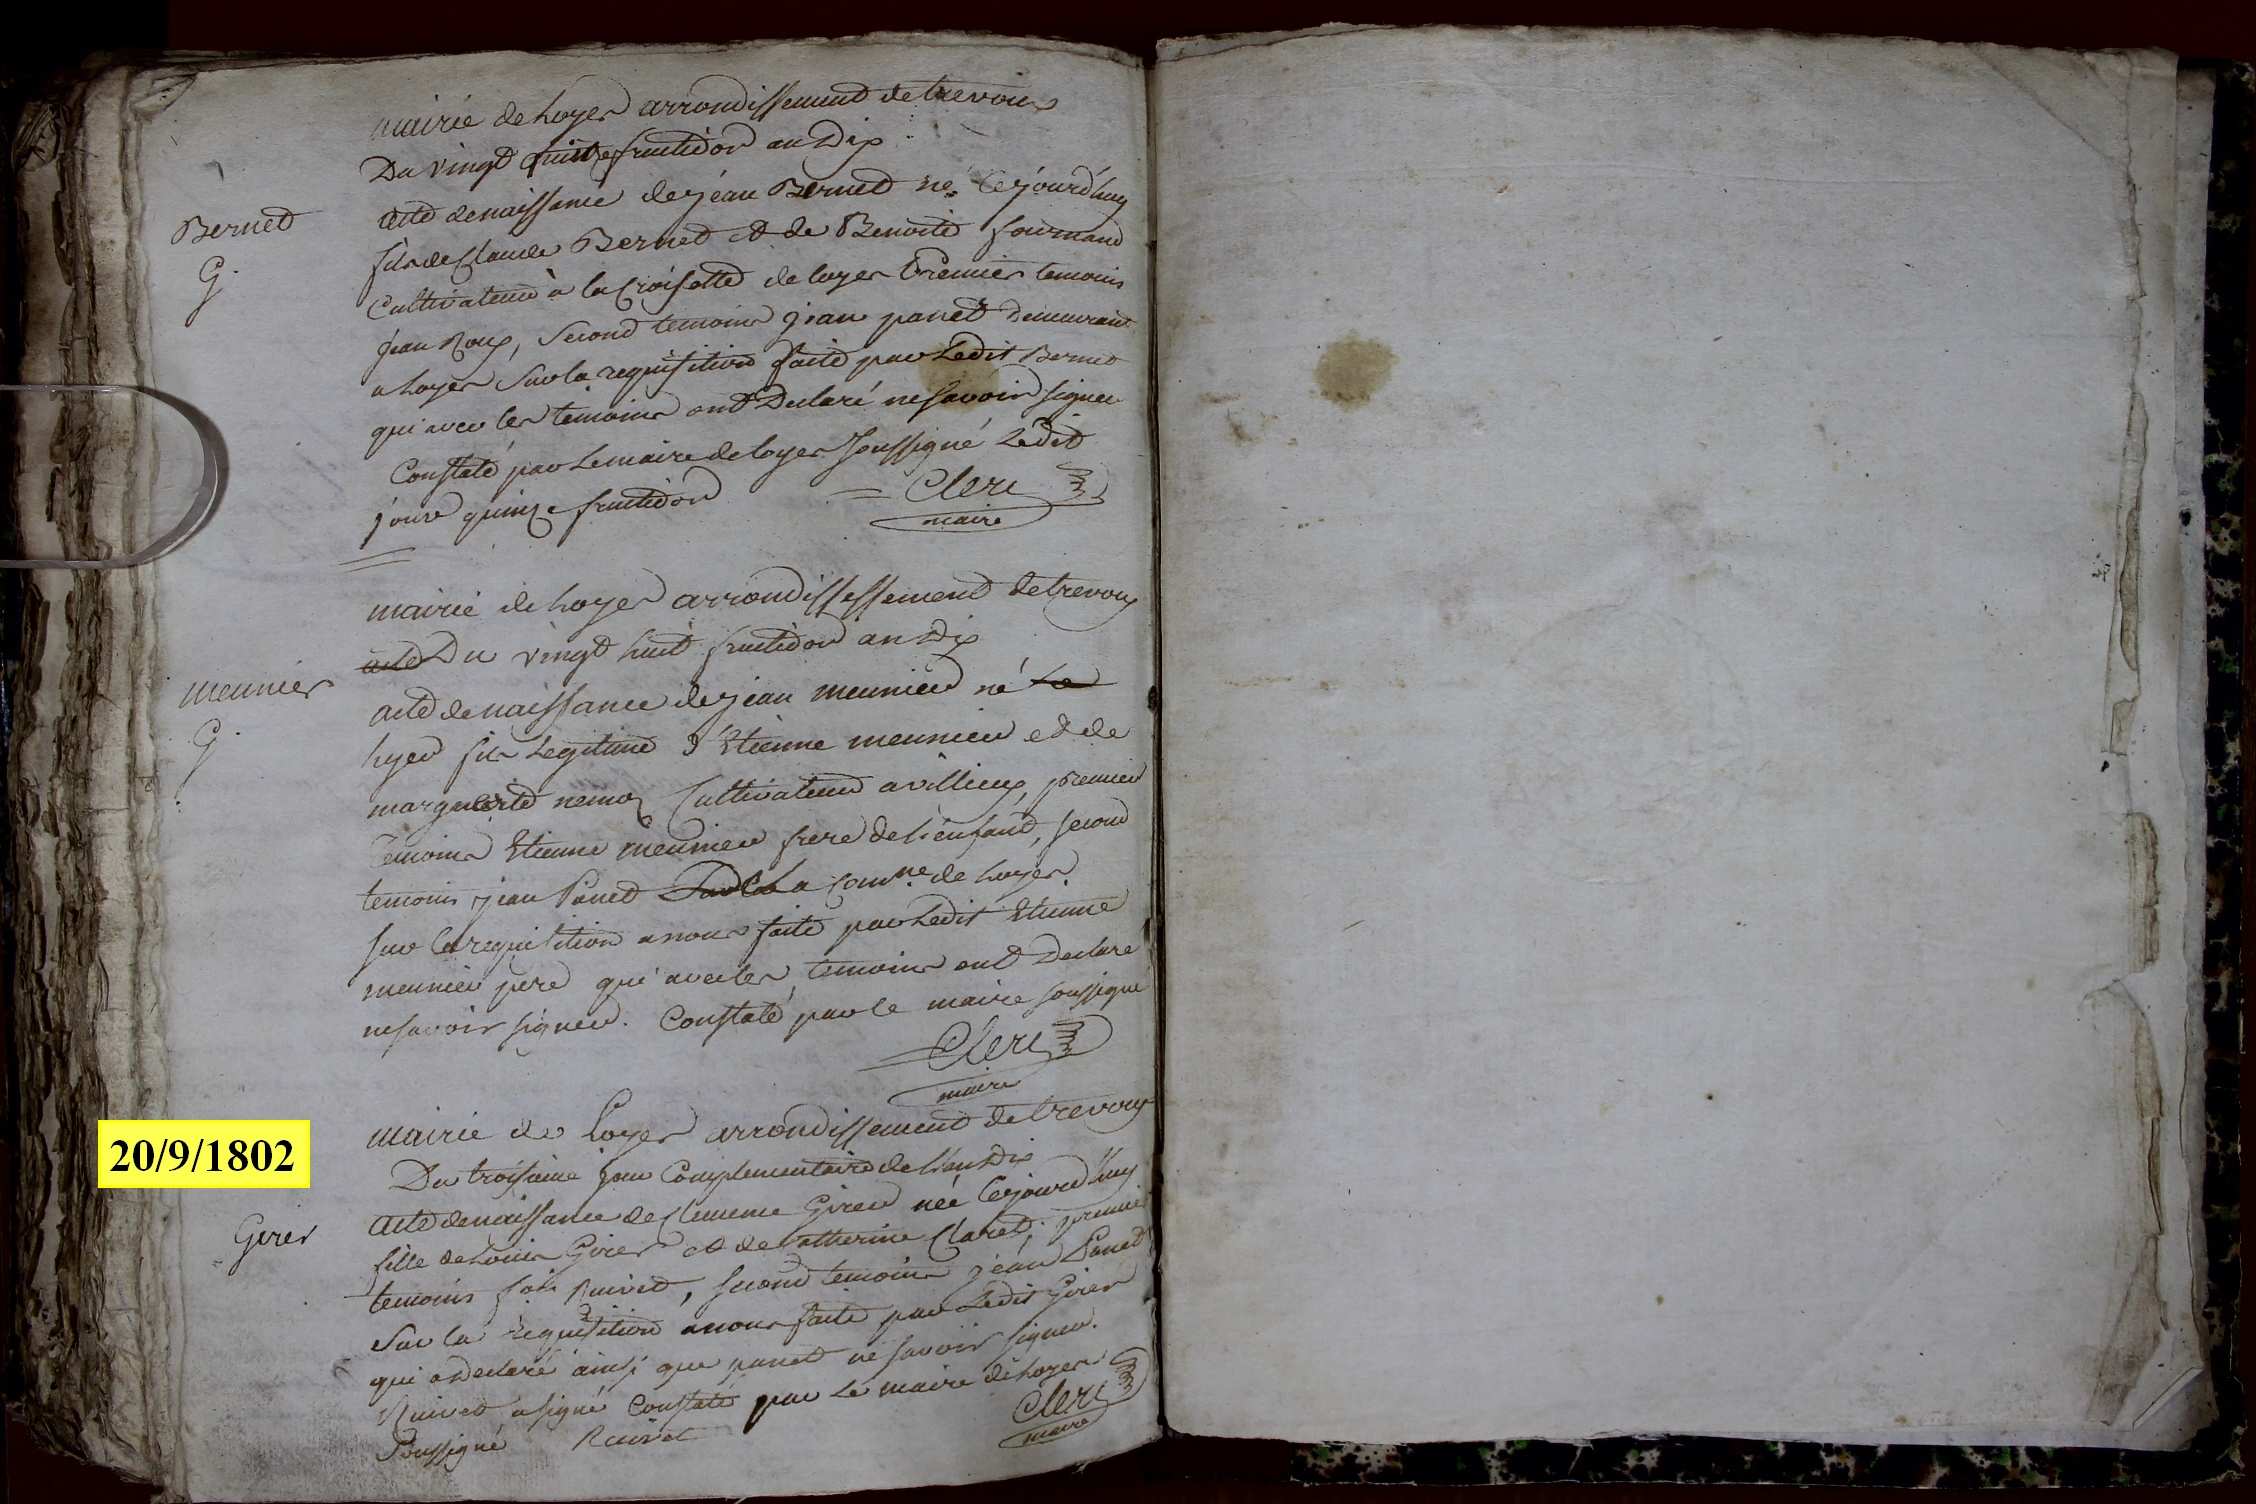 mairie de loyes arrondissement de trevoux
Du vingt fructidor an Dix
Bernet
G.
acte de naissance de jean Bernet né Cejourd'huy
fils de Claude Bernet et de Benoite
Cultivateur à la Croisette de loyes Premier temoins
jean Roux, Second temoins jean panet Demeurant
a Loyes Sur la requisition faite par Ledit Bernet
qui avec les temoins ont Declaré ne Savoir signer
Constaté par Le maire de loyes Soussigné Ledit
jour quinze fructidor
Clerc
maire
mairie de Loyes arrondissessement de trevoux
acte Du vingt huit fructidor an Dix
meunier
G.
acte de naissance de jean meunier né Le
hyer fils Legitime d'Etienne meunier et de
marguerite nemoz Cultivateur a villieux, premier
Temoins Etienne meunier frere de L'enfant, second
temoins jean Panet La comne de Loyes.
Sur la requisition a nous faite par Ledit Etienne
meunier pere qui avec les temoins ont Declare
ne savoir signer. Constaté par le maire soussigné
Clerc
maire
mairie de Loyes arrondissement de trevoux
20/9/1802
Du troisieme jour Complementaire de L'an Dix
Girer
acte de naissance de Clemence Girer née Cejourd'huy
fille de Louis Girer et de Catherine Claret, premier
temoins Ruivet, second temoins jean Panet
Sur la requisition a nous faite par Ledit Girer
qui a Declaré ainsi que panet ne savoir signer.
Ruivet a signé Constaté par Le maire de Loyes
Soussigné Ruivet
Clerc
maire